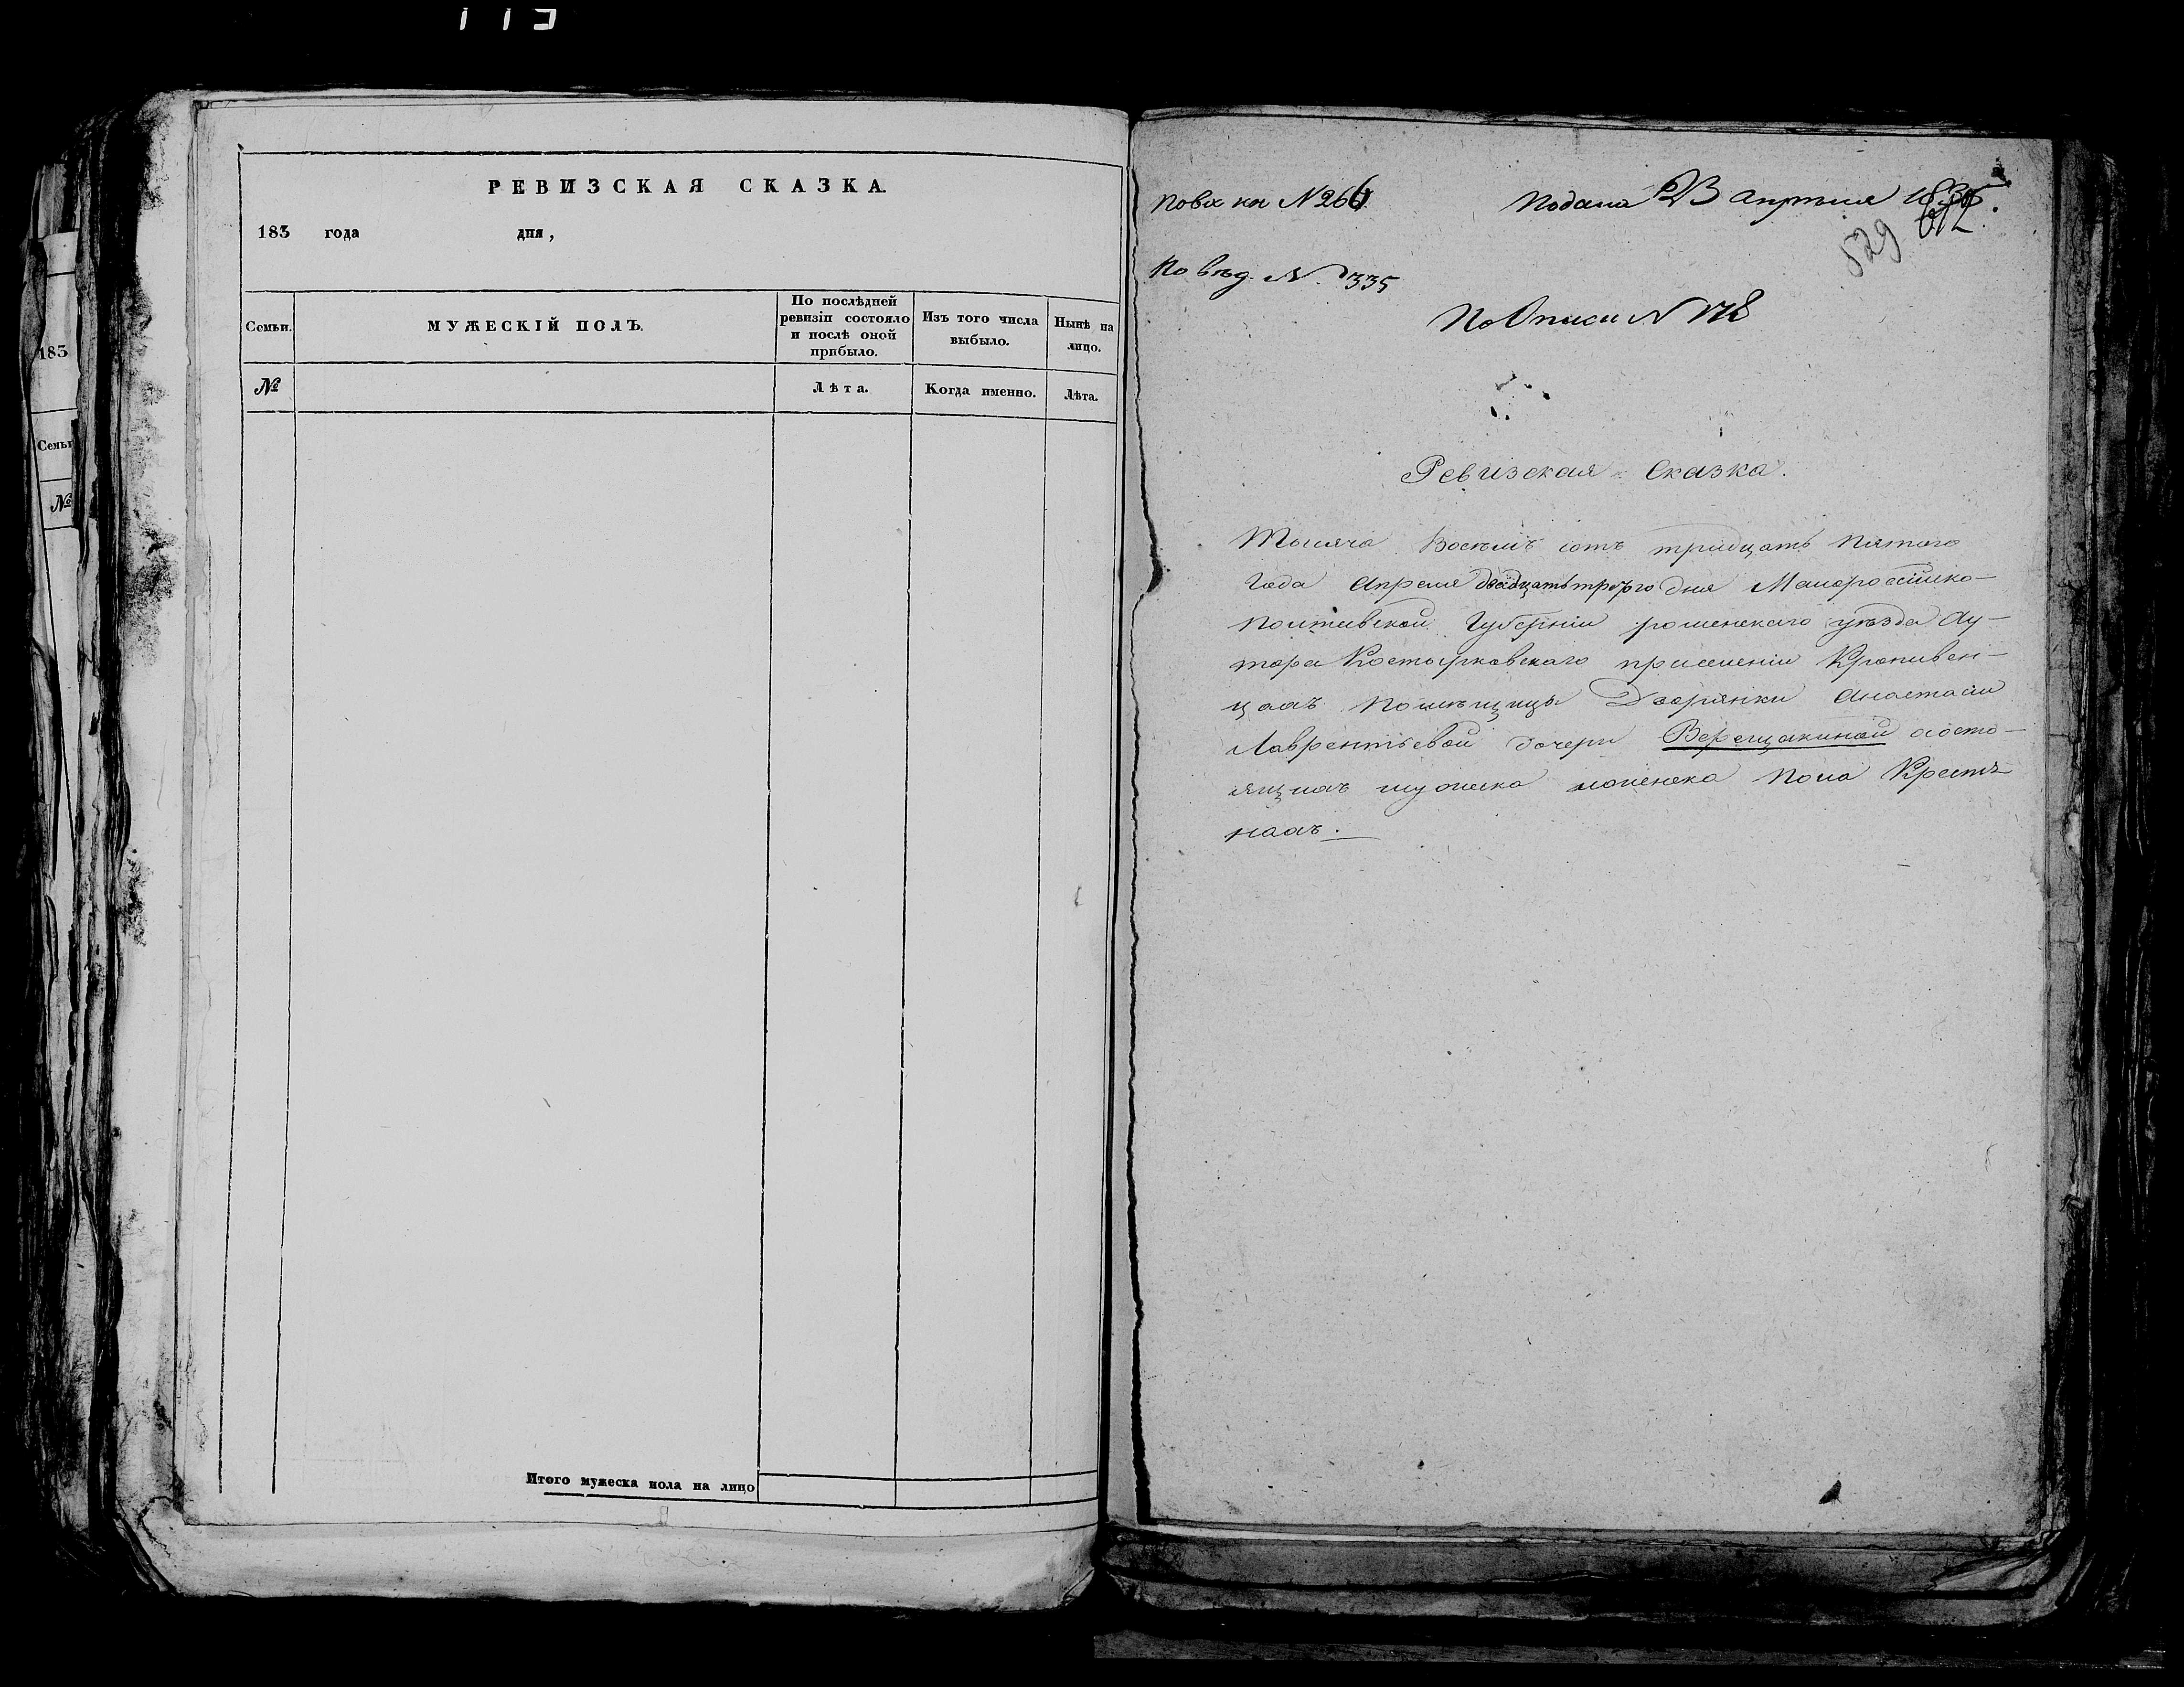 РЕВИЗСКАЯ СКАЗКА.
183 года дня,
Семьи.
МУЖЕСКІЙ ПОЛЪ.
По послѣдней ревизіи состояло и послѣ оной прибыло.
Изъ того числа выбыло.
Нынѣ на лицо.
№
Лѣта.
Когда именно.
Лѣта.
Итого мужеска пола на лицо
183
Семьи
№
По вх кн N 266
Подана 23 апрѣля 1835
529
По вѣд. N. 335
По Описи N 178
Ревизская Сказка.
Тысяча Восемъ сотъ тридцать пятого
Года Апреля двадцать третого дня Малороссійско-
Полтавской Губерніи роменскаго уѣзда Ху-
тора Костырковскаго при селеніи Кропивен-
цахъ Помѣщицы Дворянки Анастасіи
Лаврентьевой дочери Верещакиной состо-
ящихъ мужеска и женска Пола Крестья
нахъ.